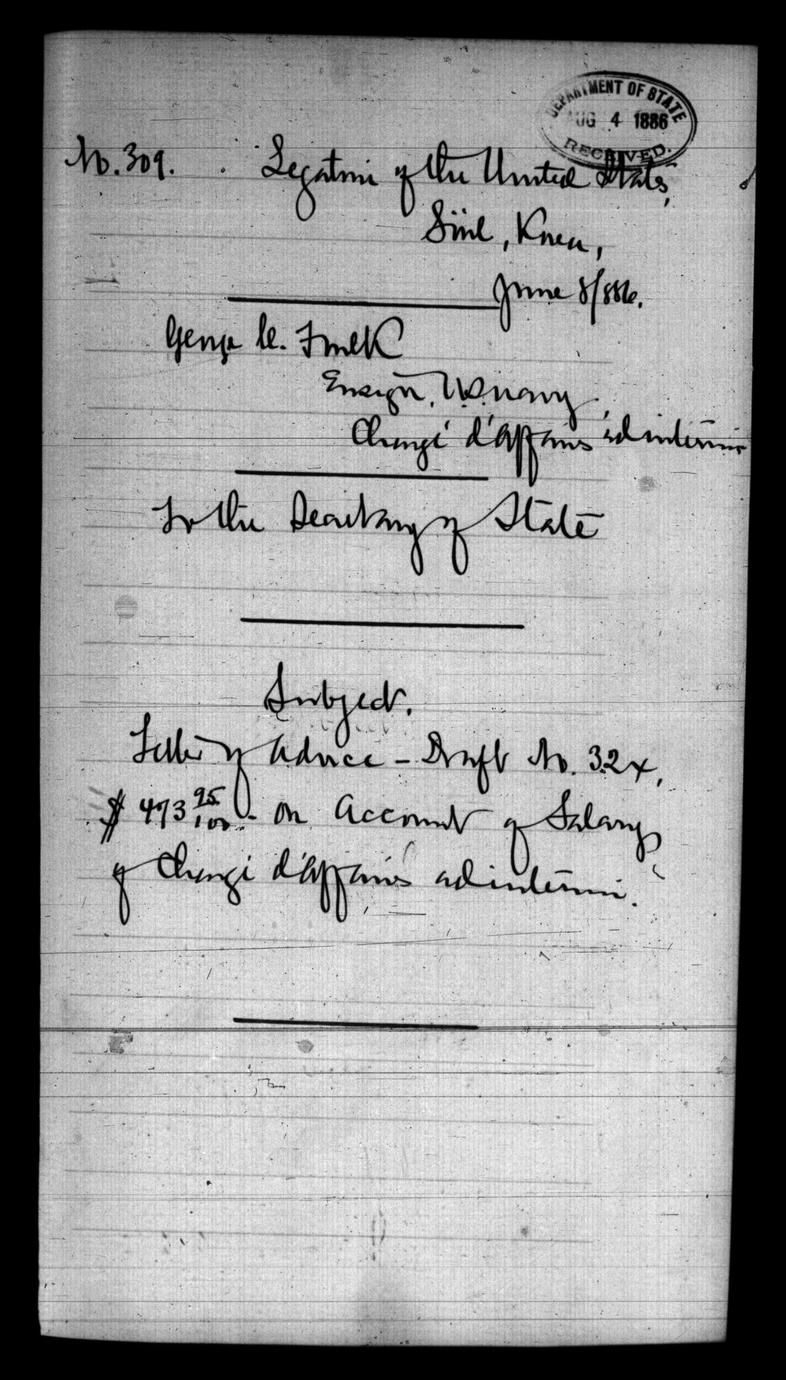 DEPARTMENT OF STATE
AUG 4 1886
RECEIVED.
No. 309. Legation of the United States,
Söul, Korea,
June 8/886.
George C. Foulk
Ensign, U.S. navy
Chargé d'Affaires ad interim
To the Secretary of State
Subject.
Letter of Advice - Draft No. 324,
$ 473 95/100 - on Account of Salary
of Chargé d'Affaires ad interim.